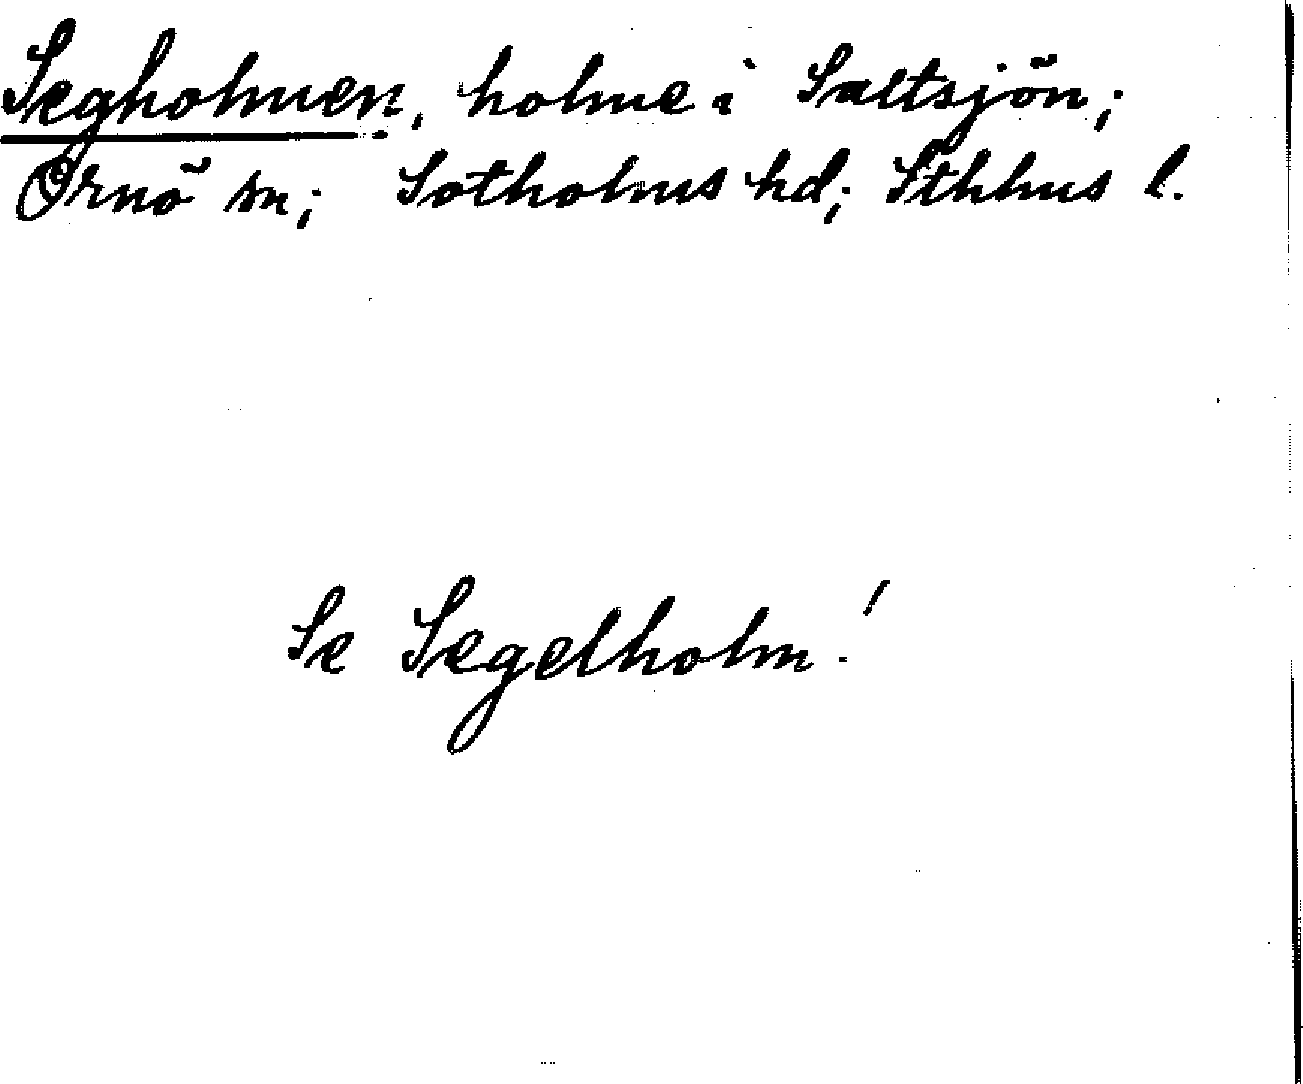 Segholmen, holme i Saltsjön;
Ornö sn; Sotholms hd; Sthlms l.
Se Segelholm!